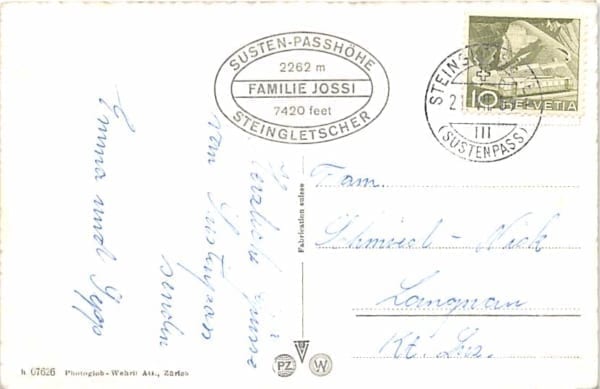 SUSTEN-PASSHÖHE
2262 m
FAMILIE JOSSI
7420 feet
STEINGLETSCHER
10
HELVETIA
STEINGLETSCHER
III
(SUSTENPASS)
Herzliche Grüsse
vom Sustenpass
senden
Emma und Sepp
Fam.
Schmied-Wick
Langnau
Kt. Lu.
Fabrication suisse
PZ
W
h 07626 Photoglob-Wehrli AG., Zürich